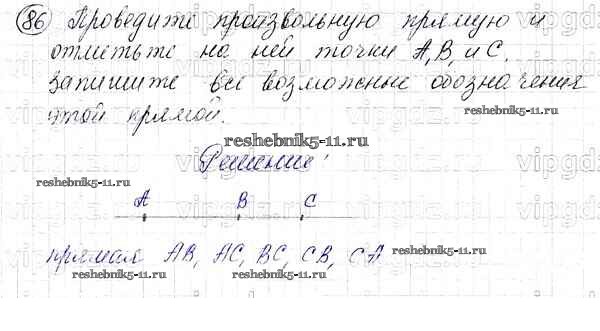 86 Проведите произвольную прямую и
отметьте на ней точки A, B, и C.
Запишите все возможные обозначения
этой прямой.
reshebnik5-11.ru
Решение:
reshebnik5-11.ru
A B C
прямая AB, AC, BC, CB, CA
reshebnik5-11.ru
reshebnik5-11.ru
reshebnik5-11.ru
vipgdz